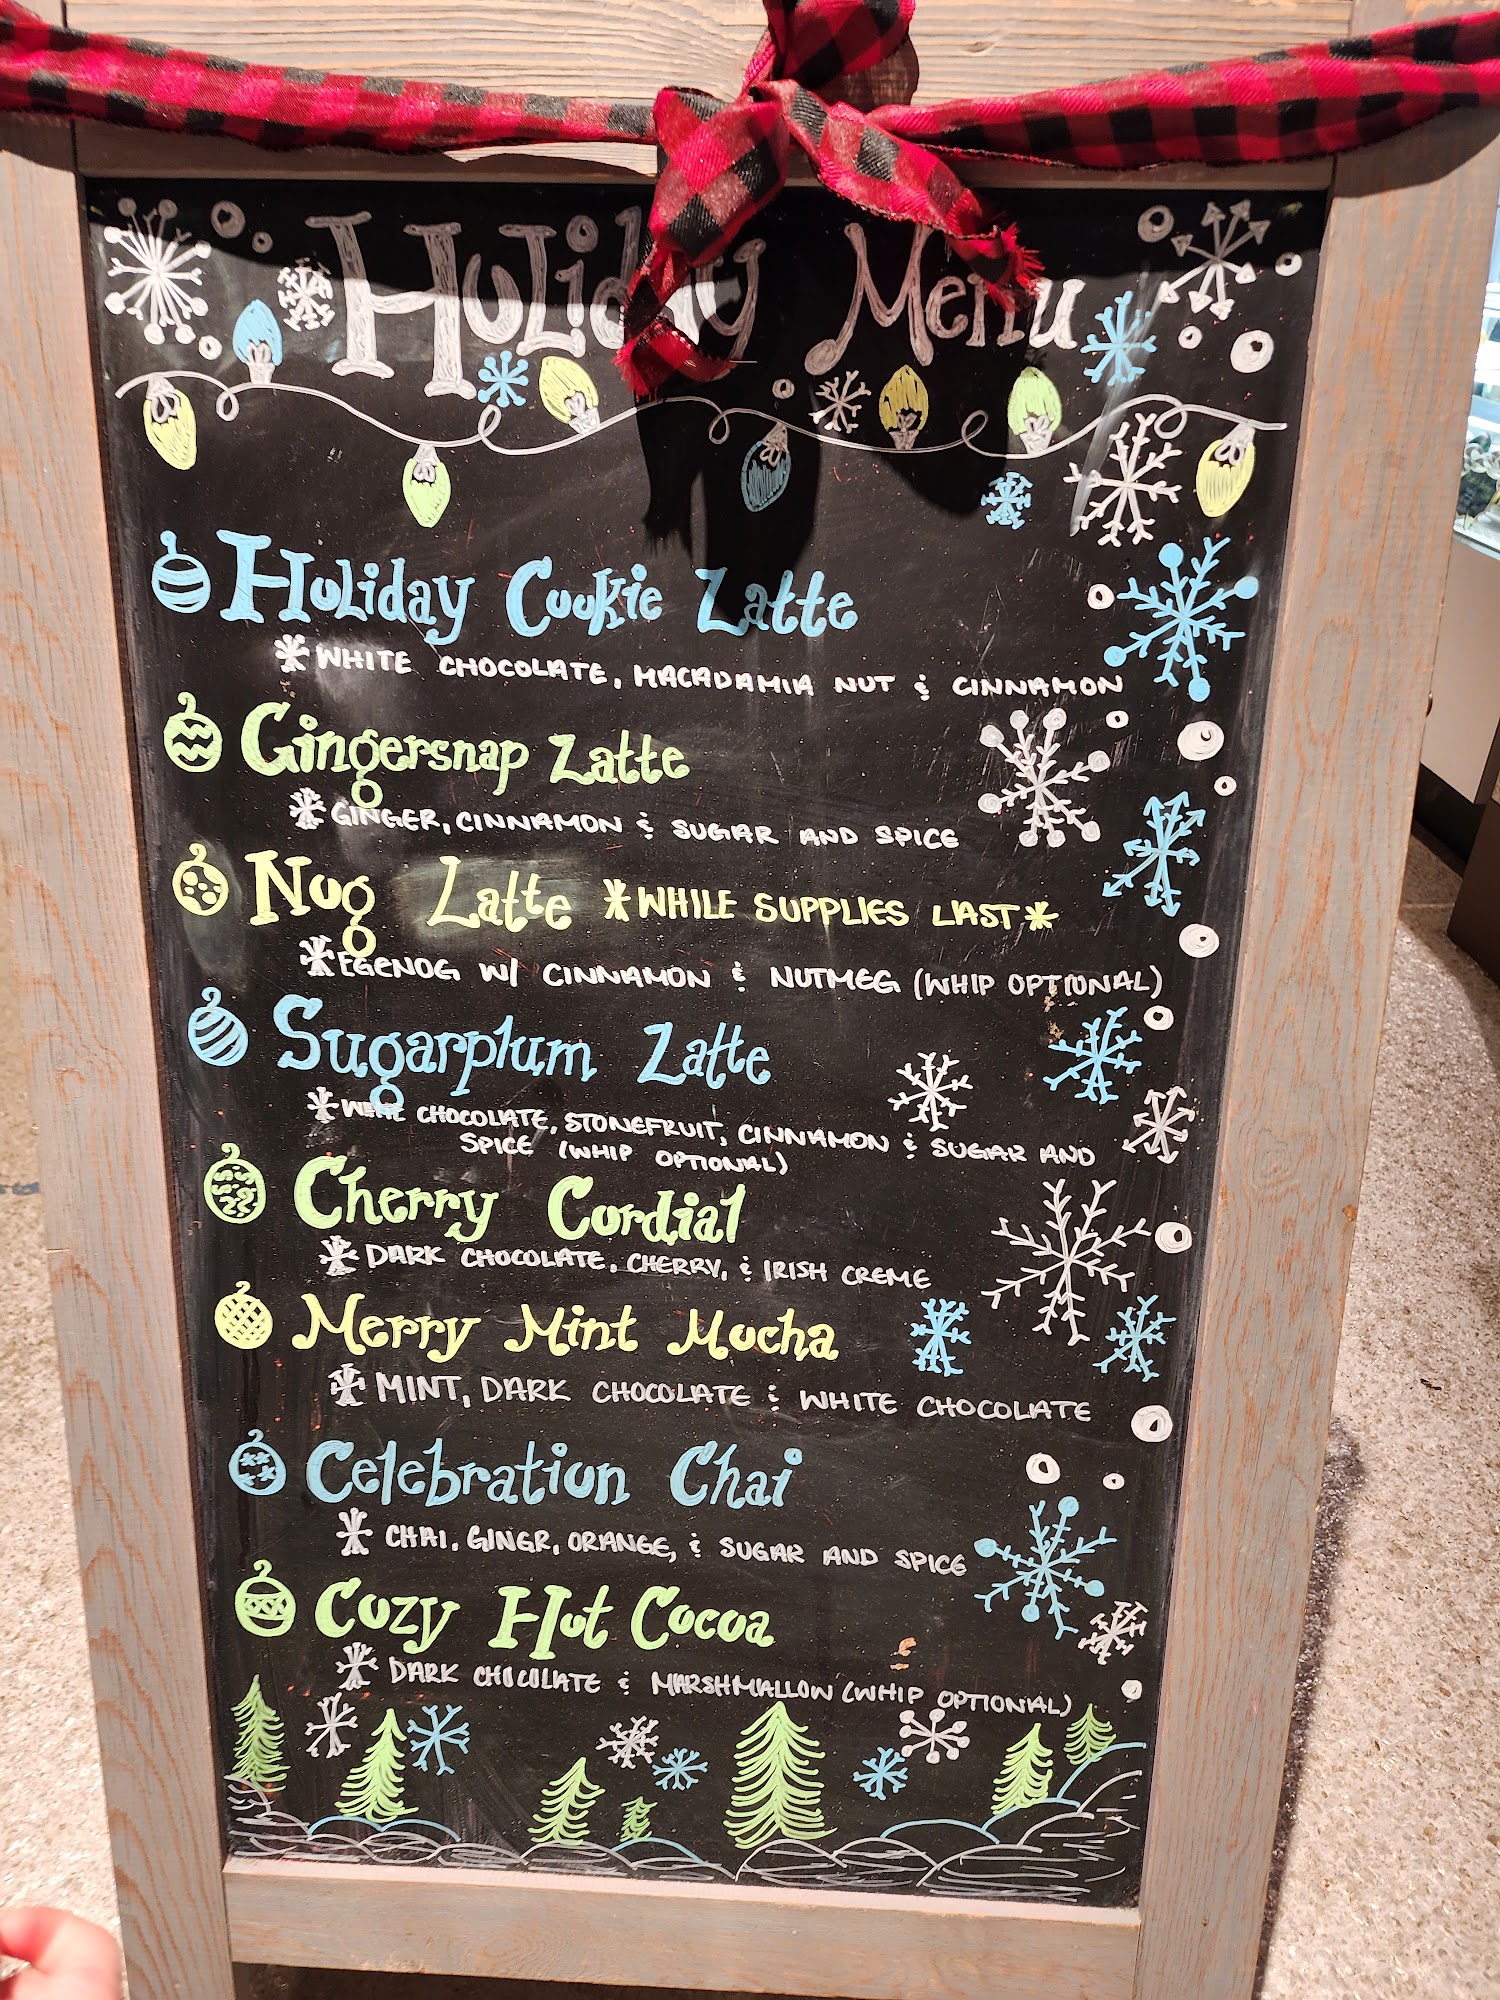 Holiday Menu
Holiday Cookie Latte
WHITE CHOCOLATE, MACADAMIA NUT & CINNAMON
Gingersnap Latte
GINGER, CINNAMON & SUGAR AND SPICE
Nog Latte *WHILE SUPPLIES LAST*
EGGNOG W/ CINNAMON & NUTMEG (WHIP OPTIONAL)
Sugarplum Latte
WHITE CHOCOLATE, STONEFRUIT, CINNAMON & SUGAR AND
SPICE (WHIP OPTIONAL)
Cherry Cordial
DARK CHOCOLATE, CHERRY, & IRISH CREME
Merry Mint Mocha
MINT, DARK CHOCOLATE & WHITE CHOCOLATE
Celebration Chai
CHAI, GINGR, ORANGE, & SUGAR AND SPICE
Cozy Hot Cocoa
DARK CHOCOLATE & MARSHMALLOW (WHIP OPTIONAL)